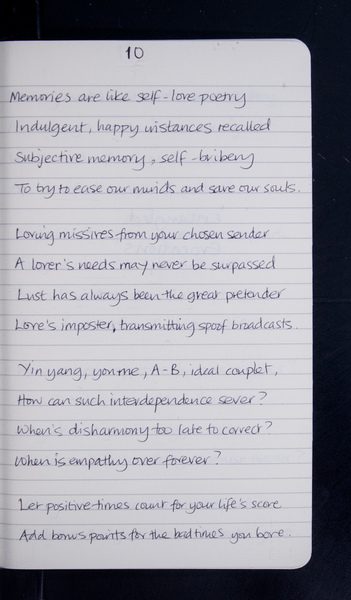 10
Memories are like self-love poetry
Indulgent, happy instances recalled
Subjective memory, self-bribery
To try to ease our minds and save our souls.
Loving missives from your chosen sender
A lover's needs may never be surpassed
Lust has always been the great pretender
Love's imposter, transmitting spoof broadcasts.
Yin yang, you me, A-B, ideal couplet,
How can such interdependence sever?
When's disharmony too late to correct?
When is empathy over forever?
Let positive times count for your life's score
Add bonus points for the bad times you bore.